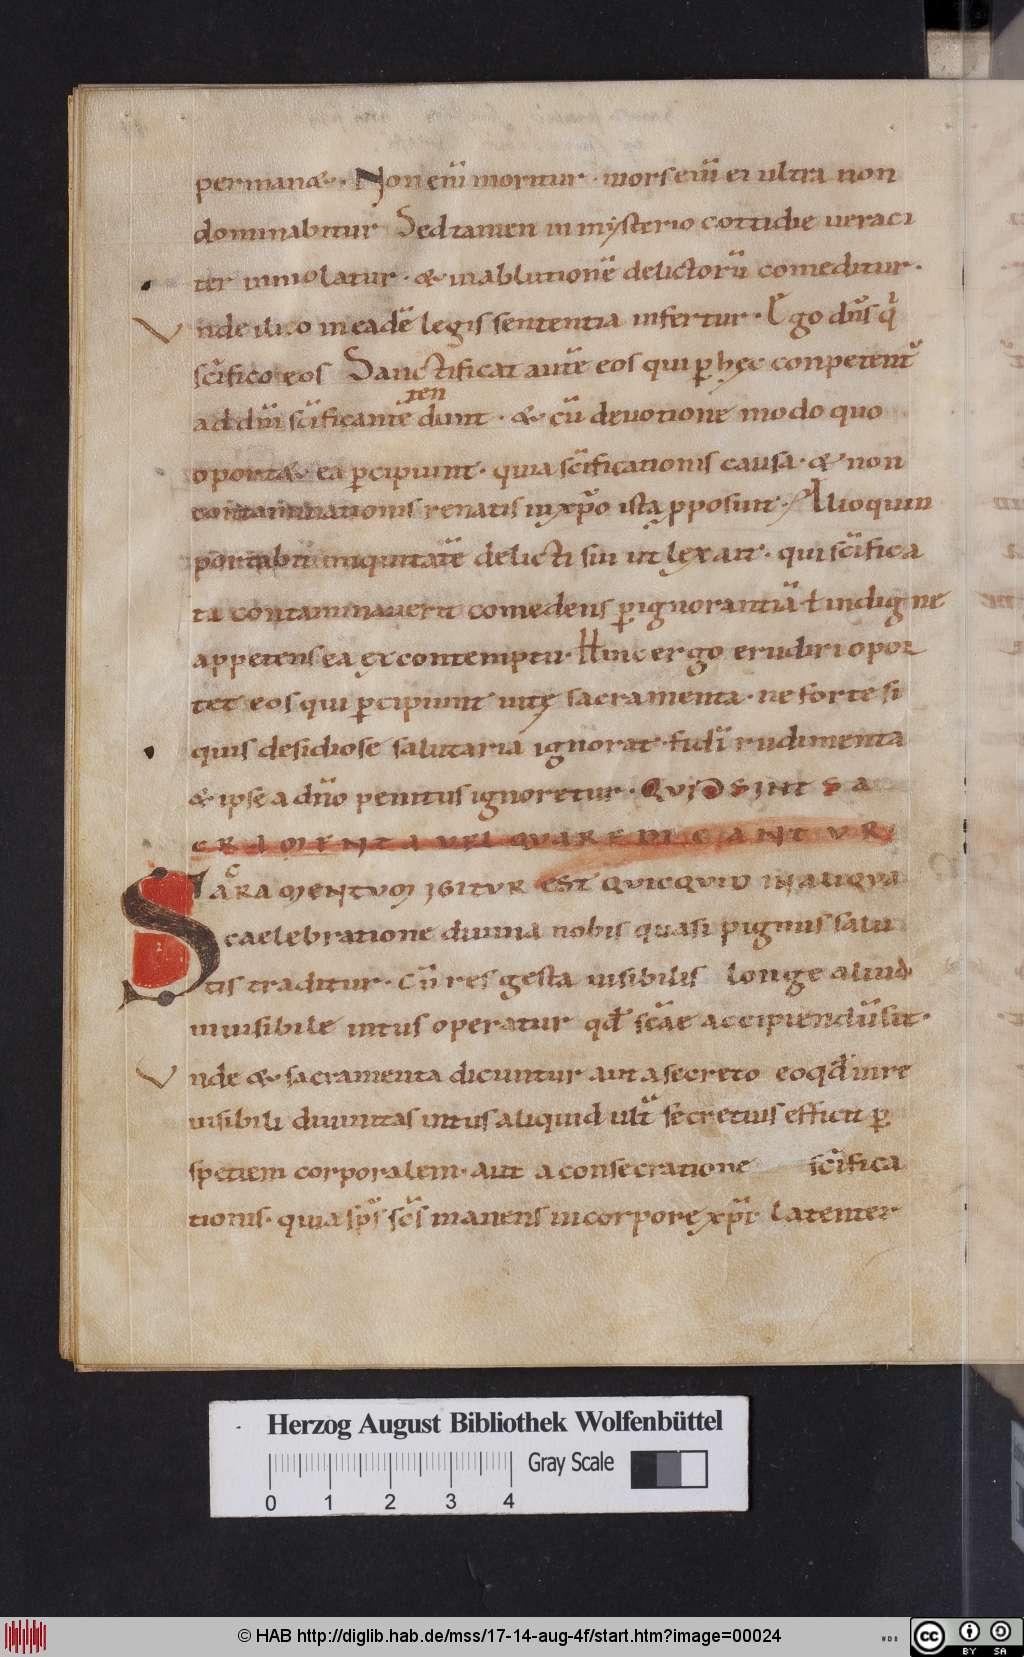 permanæ. Non eni̅ moritur. mors eni̅ ei ultra non
dominabitur Sed tamen in mysterio cottidie ueraci
ter immolatur. & in ablutione̅ delictoru̅ comeditur.
Vnde illico in eade̅ legis sententia infertur. Ego dn̅s q̅
sc̅ifico eos Sanctificat aute̅ eos qui p̱ hęc conpetent̅
ten
ad dn̅i sc̅ificante̅ dunt. & cu̅ deuotione modo quo
oport&. ea p̱cipiunt. quia sc̅ificationis causa. & non
contaminationis renatis in xp̅o ista p̱posuit. Alioquin
portabit iniquitate̅ delicti sui ut lex ait. qui sc̅ifica
ta contaminauerit comedens p̱ ignorantia̅ ł indigne
appetens ea ex contemptu. Hinc ergo erudiri opor
tet eos qui p̱cipiunt uitę sacramenta. ne forte si
quis desidiose salutaria ignorat fidi̅ rudimenta
& ipse a dn̅o penitus ignoretur. QVID SINT SA
CRAMENTA VEL QVARE DICANTVR
SACRAMENTVM IGITVR EST QVICQVID IN ALIQVA
caelebratione diuina nobis quasi pignus salu
tis traditur. Cu̅ res gesta uisibilis longe aliud
inuisibile intus operatur qđ sc̅ae accipiendu̅ sit.
Vnde & sacramenta dicuntur aut a secreto eo qđ in re
uisibili diuinitas intus aliquid ult̅ secretius efficit p̱
spetiem corporalem. aut a consecratione sc̅ifica
tionis. quia sp̅s sc̅s manens in corpore xp̅i latenter
Herzog August Bibliothek Wolfenbüttel
Gray Scale
0 1 2 3 4
© HAB http://diglib.hab.de/mss/17-14-aug-4f/start.htm?image=00024
WDB
cc BY SA